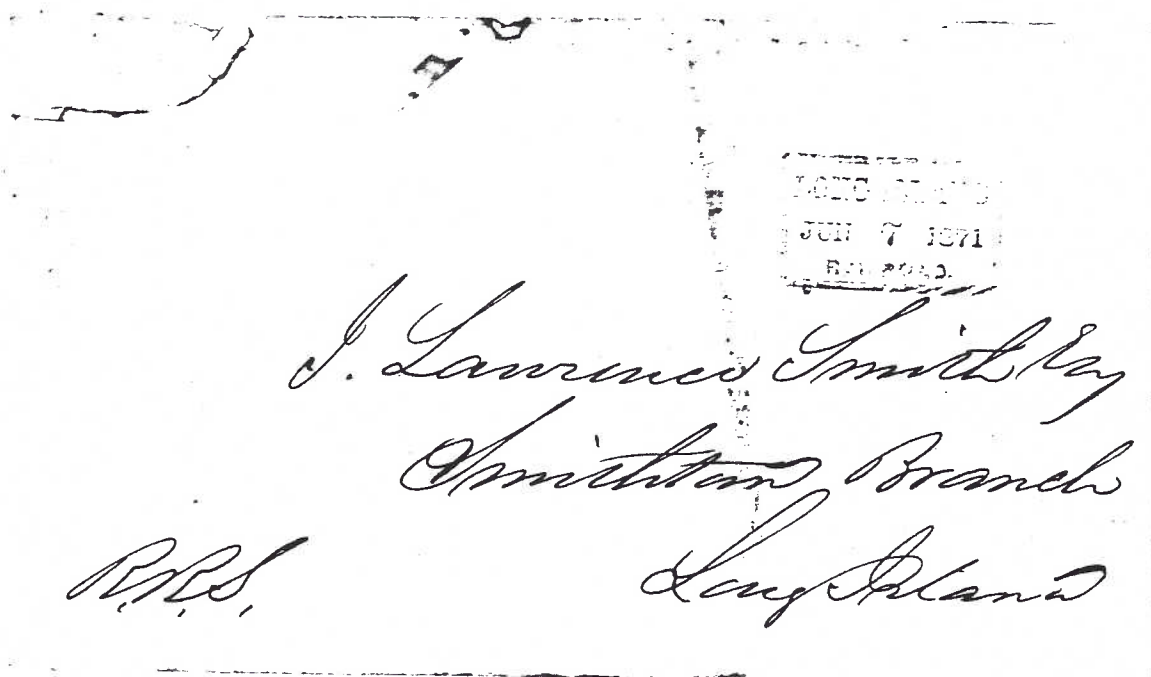 LONG ISLAND
JUN 7 1871
RAILROAD.
J. Lawrence Smith Esq
Smithtown Branch
Long Island
R.R.S.